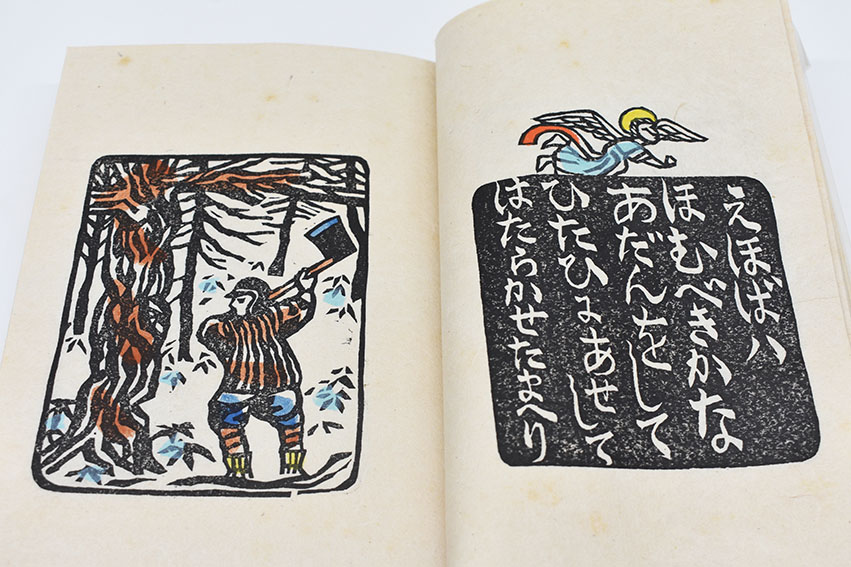 えほばハ
ほむべきかな
あだんをして
ひたひにあせして
はたらかせたまへり